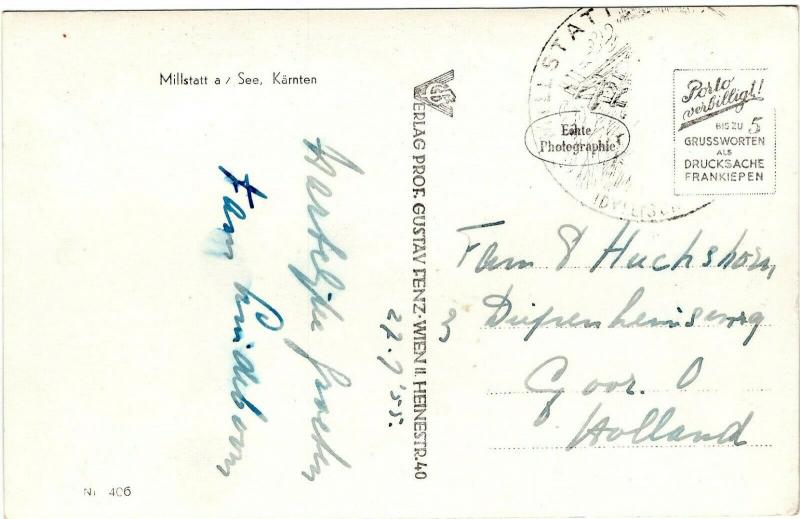 Millstatt a / See, Kärnten
Hartelijke groeten
Fam
27.7'55.
VERLAG PROF. GUSTAV FENZ·WIEN II. HEINESTR. 40
MILLSTATT
IDYLLISCH
Echte
Photographie
Porto
verbilligt!
BIS ZU 5
GRUSSWORTEN
ALS
DRUCKSACHE
FRANKIEREN
Fam Huckshorn
3 Diepenheimseweg
Goor. O
Holland
Nr 406